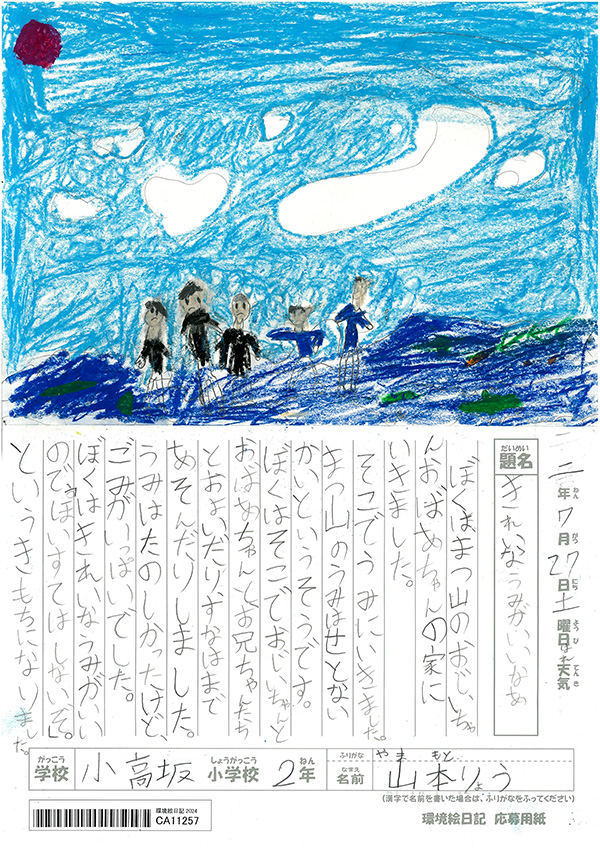 二年7月27日土曜日はれ天気
ねん がつ にち ようび てんき
だいめい
題名
きれいなうみがいいなあ
ぼくはまつ山のおじいちゃ
んおばあちゃんの家に
いきました。
そこでうみにいきました。
まつ山のうみはせとない
かいというそうです。
ぼくはそこでおじいちゃんと
おばあちゃんとお兄ちゃんたち
とおよいだりすなはまで
あそんだりしました。
うみはたのしかったけど、
ごみがいっぱいでした。
ぼくはきれいなうみがいい
のでポイすてはしないぞ。
というきもちになりました。
がっこう しょうがっこう ねん
学校 小高坂 小学校 2年
ふりがな やま もと
なまえ
名前 山本りょう
(漢字で名前を書いた場合は、ふりがなをふってください)
環境絵日記 2024
CA11257
環境絵日記 応募用紙